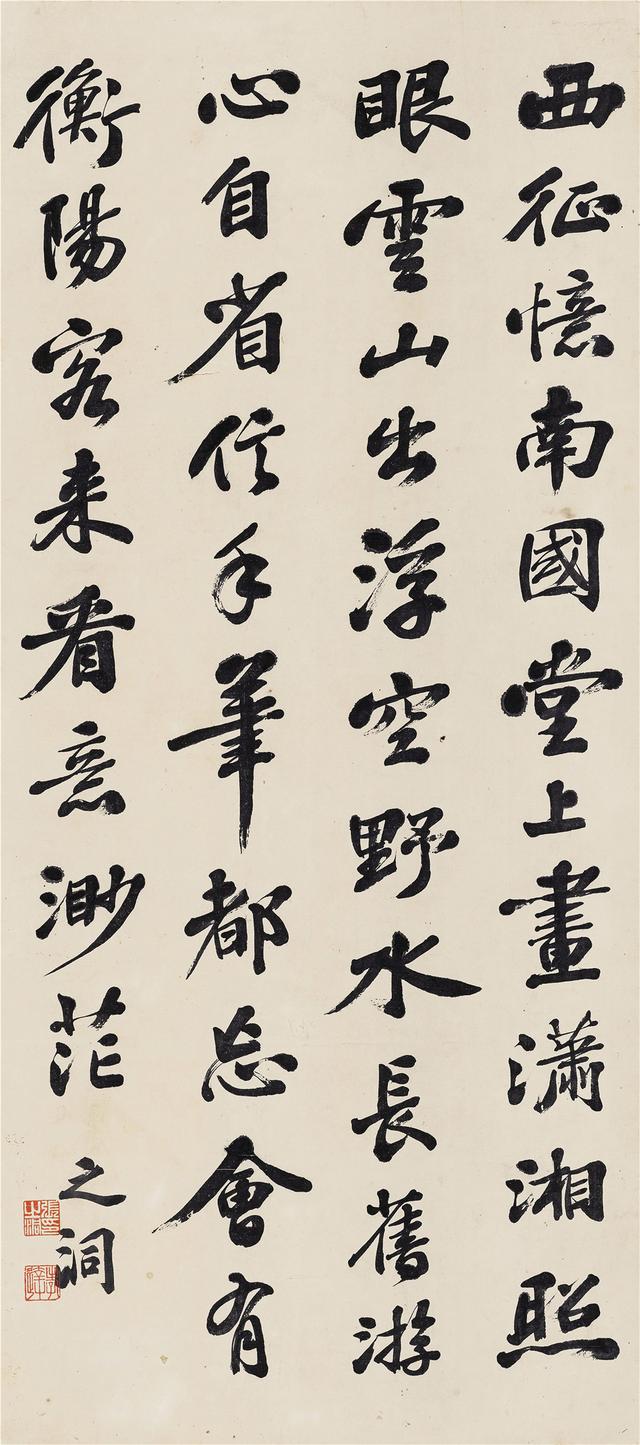 西征憶南國堂上畫瀟湘照
眼雲山出浮空野水長舊游
心自省信手筆都忘會有
衡陽客来看意渺茫
之洞
張之洞印